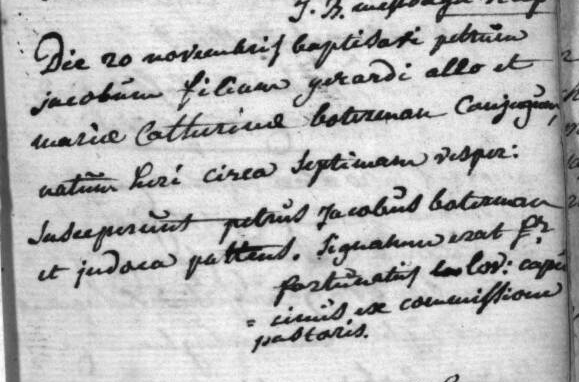 J. B.
Die 20 novembris baptisavi petrum
jacobum filium gerardi allo et
mariæ Catharinæ boterman Conjugum,
natum heri circa septimam vesper:
susceperunt petrus jacobus boterman
et judoca pattens. signatum erat fr.
fortunatus lov: capu
= cinus ex commissione
pastoris.